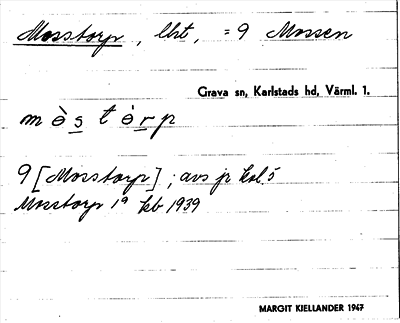 Mosstorp, lht, = 9 Mossen
Grava sn, Karlstads hd, Värml. 1.
mòstòrp
9 [Mosstorp]; avs jr kol. 5
Mosstorp 19 kb 1939
MARGIT KIELLANDER 1947